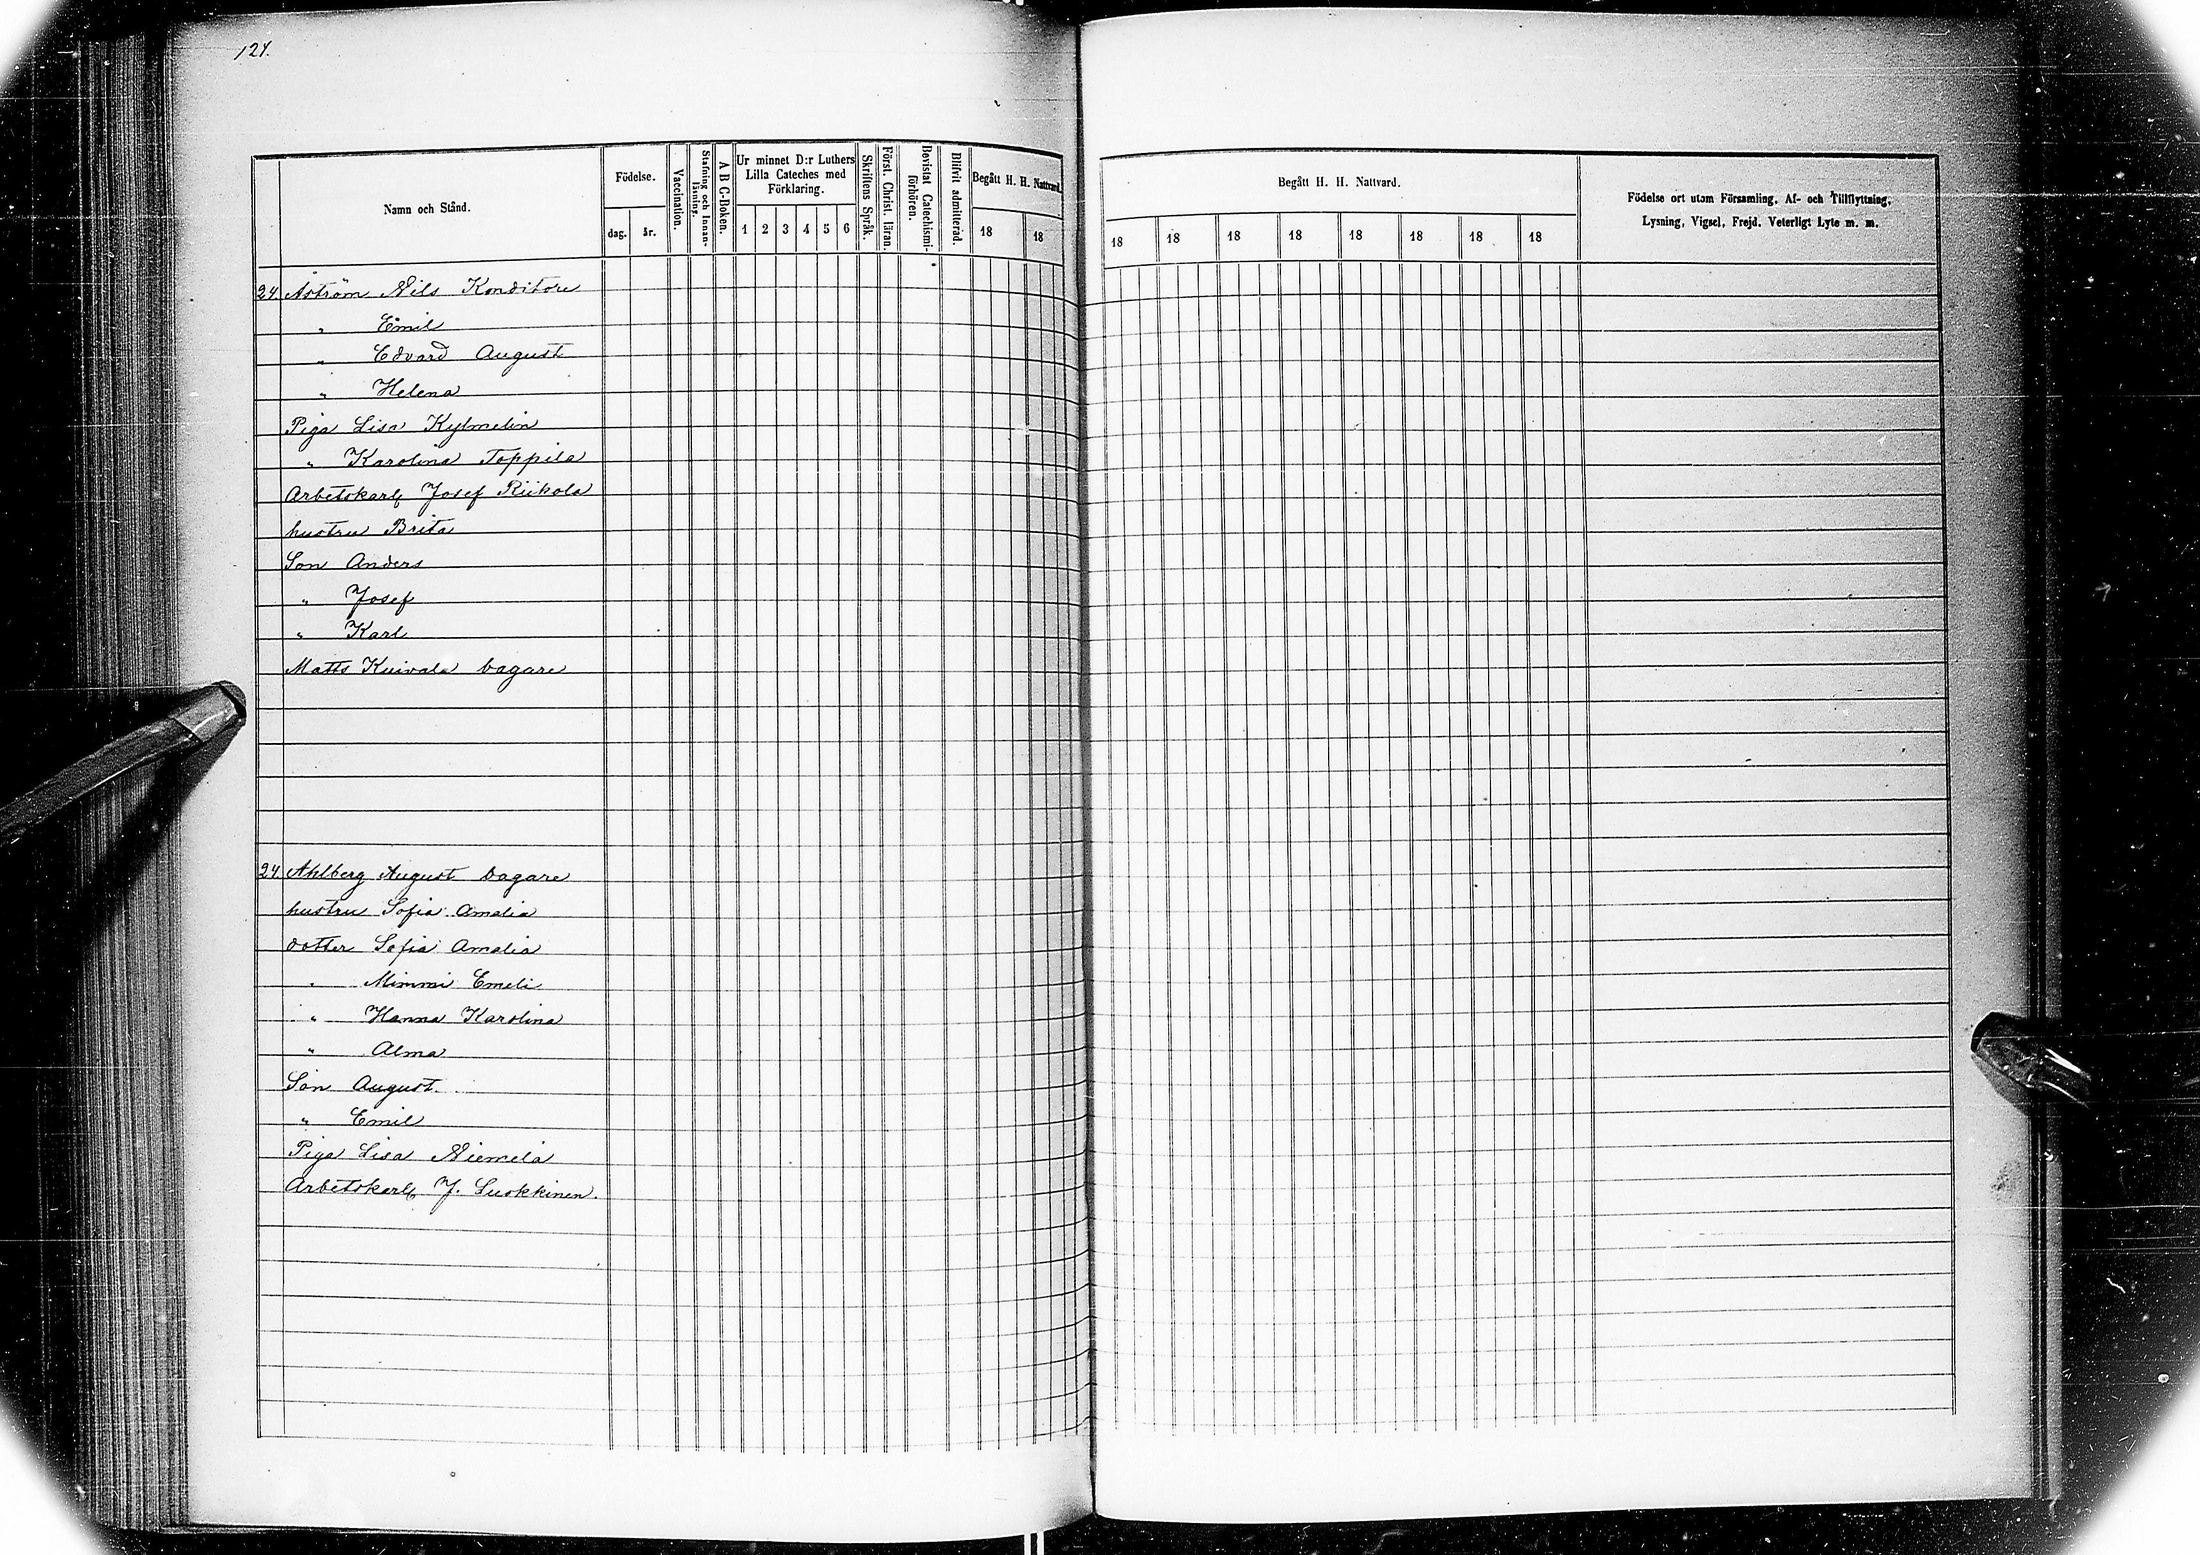 124.
Namn och Stånd.
Födelse.
dag.
år.
Vaccination.
Stafning och Innan-
läsning.
A B C-Boken.
Ur minnet D:r Luthers
Lilla Cateches med
Förklaring.
1 2 3 4 5 6
Skriftens Språk.
Först. Christ. läran.
Bevistat Catechismi-
förhören.
Blifvit admitterad.
Begått H. H. Nattvard.
18 18
24 Åström Nils Konditore
" Emil
" Edvard August
" Helena
Piga Lisa Kylmelin
" Karolina Toppila
Arbetskarl Josef Riikola
hustru Brita
Son Anders
" Josef
" Karl
Matts Kuivala bagare
24 Ahlberg August bagare
hustru Sofia Amalia
dotter Sofia Amalia
" Mimmi Emeli
" Hanna Karolina
" Alma
Son August
" Emil
Piga Lisa Niemelä
Arbetskarl J. Luokkinen.
Begått H. H. Nattvard.
18 18 18 18 18 18 18 18
Födelse ort utom Församling, Af- och Tillflyttning,
Lysning, Vigsel, Frejd, Veterligt Lyte m. m.